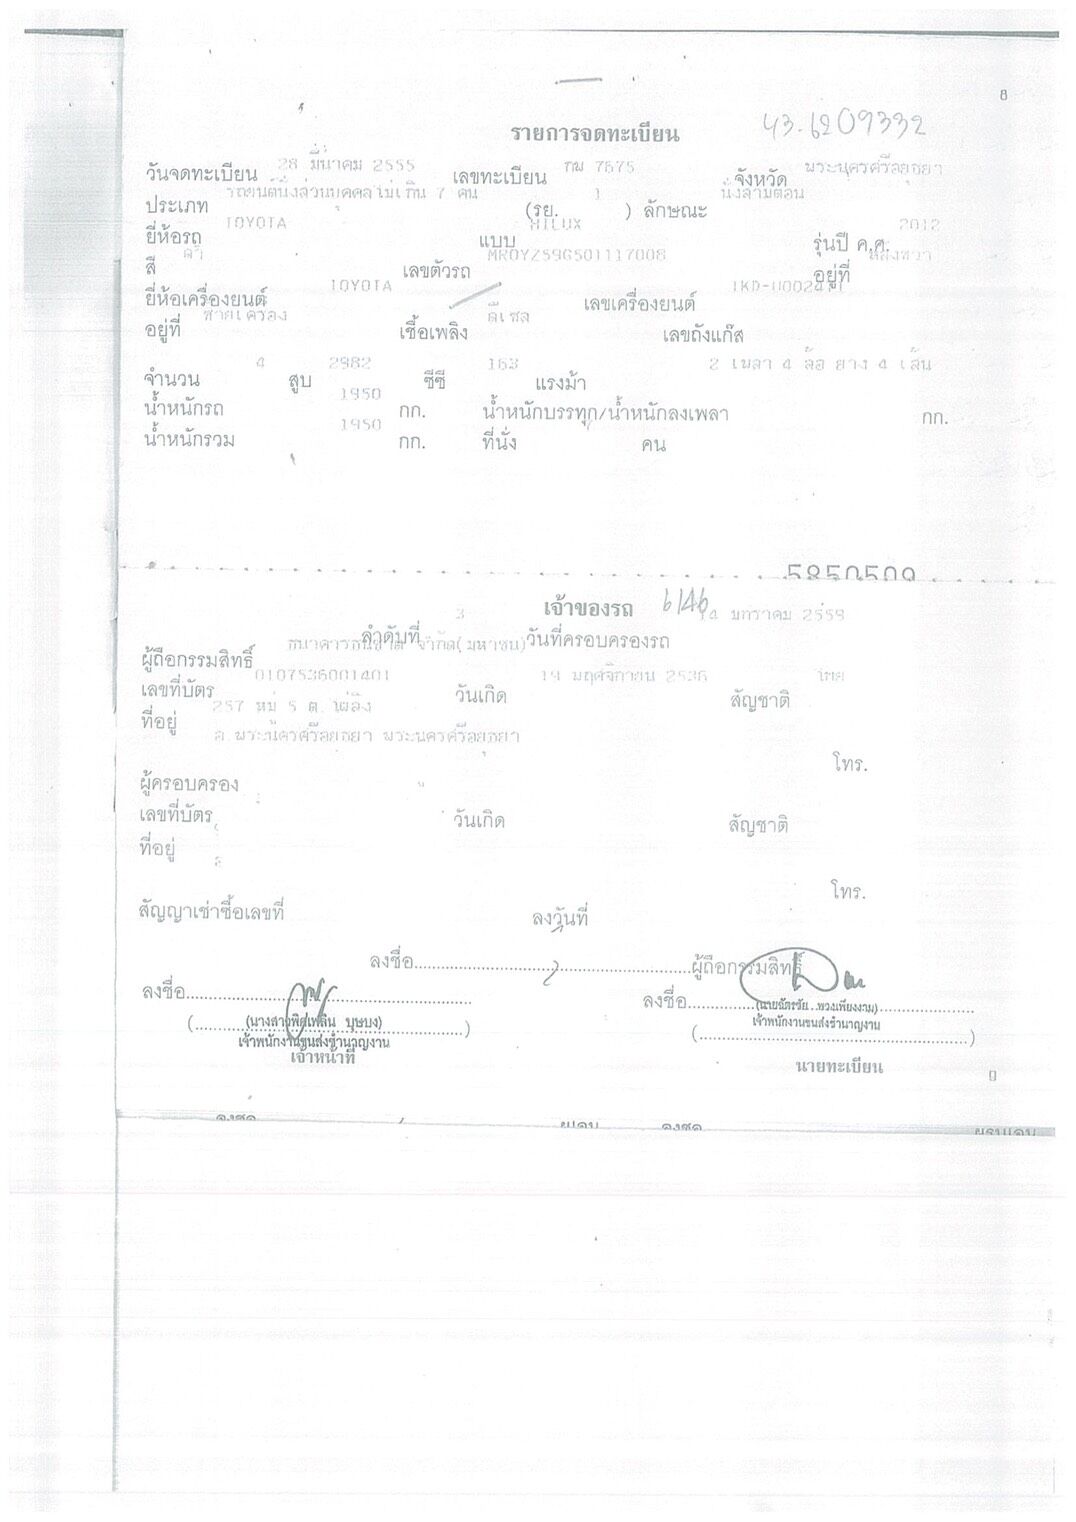 8
รายการจดทะเบียน 43-6209332
วันจดทะเบียน 28 มีนาคม 2555 เลขทะเบียน 7675 จังหวัด พระนครศรีอยุธยา
ประเภท รถยนต์นั่งส่วนบุคคลไม่เกิน 7 คน (รย. 1 ) ลักษณะ นั่งสามตอน
ยี่ห้อรถ TOYOTA แบบ HILUX รุ่นปี ค.ศ. 2012
สี ดำ เลขตัวรถ MR0YZ59G501117008 อยู่ที่
ยี่ห้อเครื่องยนต์ TOYOTA เลขเครื่องยนต์
อยู่ที่ ซ้ายเครื่อง เชื้อเพลิง ดีเซล เลขถังแก๊ส
จำนวน 4 สูบ 2982 ซีซี 163 แรงม้า 2 เพลา 4 ล้อ ยาง 4 เส้น
น้ำหนักรถ 1950 กก. น้ำหนักบรรทุก/น้ำหนักลงเพลา กก.
น้ำหนักรวม 1950 กก. ที่นั่ง 7 คน
5850509
เจ้าของรถ 6146
ลำดับที่ 3 วันที่ครอบครองรถ 14 มกราคม 2559
ผู้ถือกรรมสิทธิ์ ธนาคารธนชาต จำกัด(มหาชน)
เลขที่บัตร 0107536001401 วันเกิด 19 พฤศจิกายน 2536 สัญชาติ ไทย
ที่อยู่ 257 หมู่ 5 ต.ไผ่ลิง
อ.พระนครศรีอยุธยา พระนครศรีอยุธยา
โทร.
ผู้ครอบครอง
เลขที่บัตร วันเกิด สัญชาติ
ที่อยู่
โทร.
สัญญาเช่าซื้อเลขที่ ลงวันที่
ลงชื่อ........................................ผู้ถือกรรมสิทธิ์
ลงชื่อ........................................ ลงชื่อ........................................
(นางสาวพิศเพลิน บุษบง) (นายฉัตรชัย พวงเพียงงาม)
เจ้าพนักงานขนส่งชำนาญงาน เจ้าพนักงานขนส่งชำนาญงาน
เจ้าหน้าที่ นายทะเบียน
9